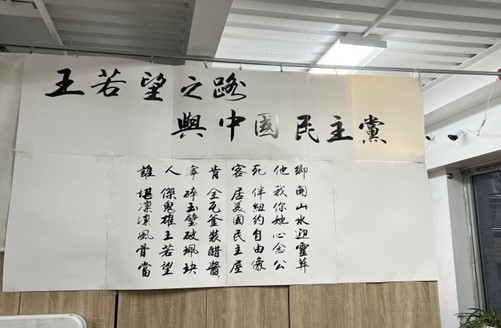 王若望之路
與中國民主黨
鄉關山水迎靈
他我你她心念公
死伴紐約自由像
客居美國民主屋
肯全瓦釜裝醋醬
寧碎玉璧破珮玦
人傑鬼雄王若望
誰堪凜凜風骨當